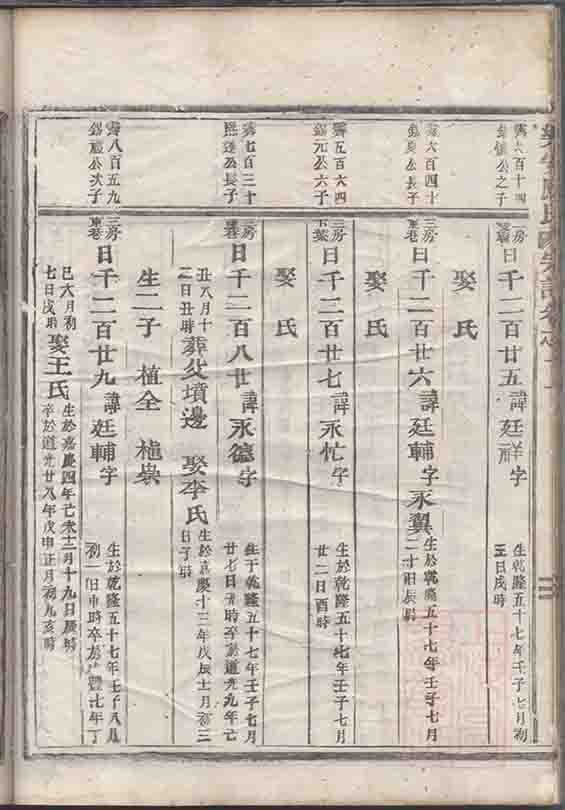 霽六百十四
公之子
三房
曰千二百廿五 諱廷祥 字
生於乾隆五十七年壬子七月初
五日戌時
娶氏
霽六百四十
公長子
三房
東巷
曰千二百廿六 諱廷輔 字永翼
生於乾隆五十七年壬子七月
二十日辰時
娶氏
霽五百六四
錫元公六子
三房
曰千二百廿七 諱永忙 字
生於乾隆五十七年壬子七月
廿二日酉時
娶氏
霽七百三十
公長子
三房
曰千二百八廿 諱永德 字
生于乾隆五十七年壬子七月
廿七日 時卒於道光九年己
丑八月十
三日丑時
葬父墳邊 娶李氏
生於嘉慶十三年戊辰十一月初三
日子時
生二子 植全 植崇
霽八百五九
錫 公次子
三房
東巷
曰千二百廿九 諱廷輔 字
生於乾隆五十七年壬子八月
初一日申時卒於咸豐七年丁
巳六月初
七日戌時
娶王氏
生於嘉慶四年己未十二月十九日辰時
卒於道光廿八年戊申正月初九亥時